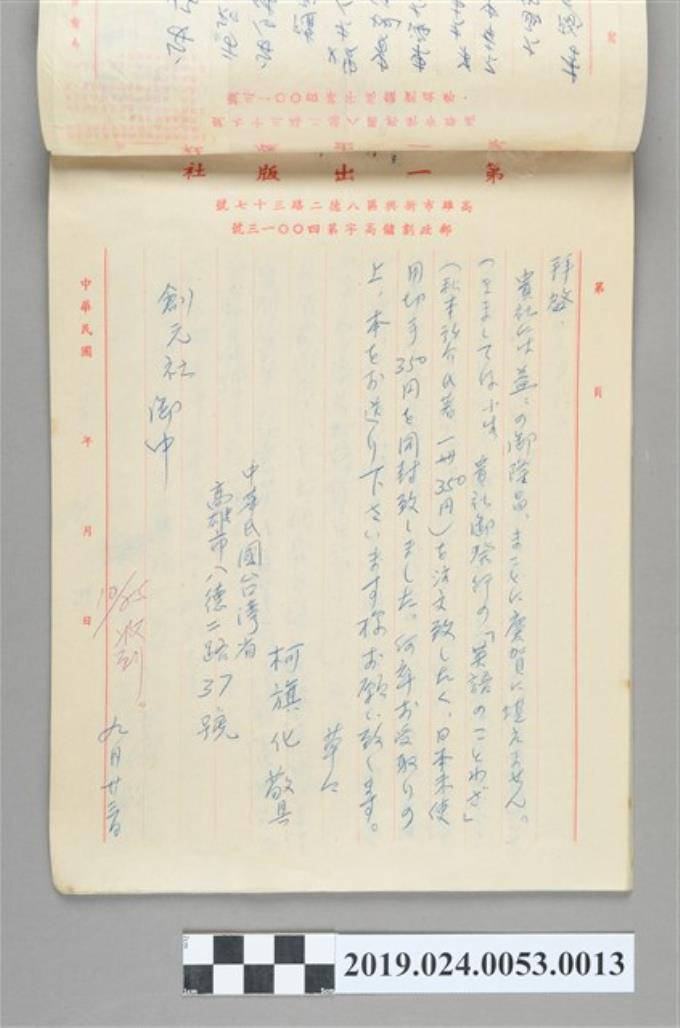 第一出版社
高雄市新興區八德二路三十七號
郵政劃儲高字第四〇〇一三號
第 頁
拝啓、
貴社には益々の御隆昌、まことに慶賀に堪えません。
つきましては小生、貴社御発行の「英語のことわざ」
(秋本弘介氏著 一冊350円)を注文致したく、日本未使
用切手350円を同封致しました。何卒お受取りの
上、本をお送り下さいます様お願い致します。
草々
柯旗化敬具
中華民國台湾省
高雄市八德二路37號
創元社御中
10/25收到。
九月廿三日
中華民國 年 月 日
2019.024.0053.0013